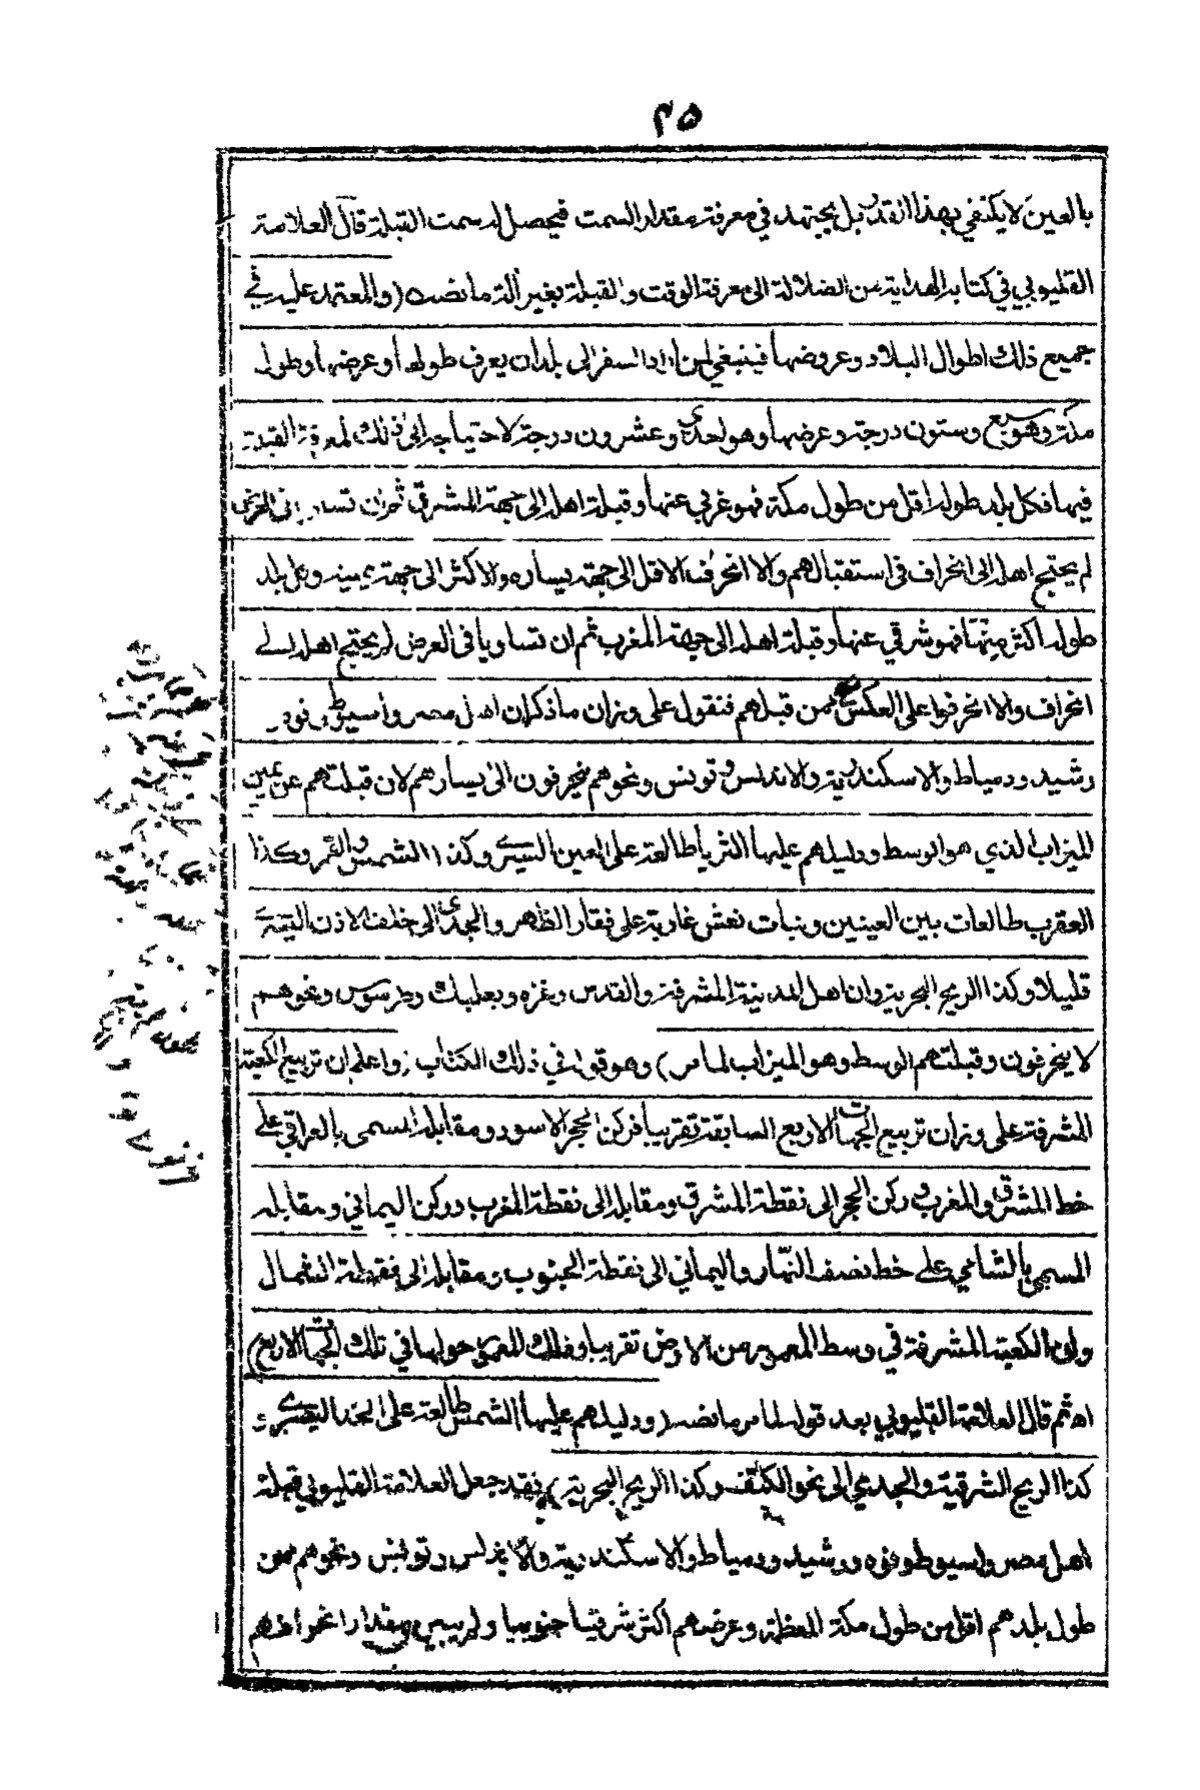 ٢٥
بالعين لا يكتفي بهذا القدر بل يجتهد في معرفة مقدار السمت فيحصل له سمت القبلة قال العلامة
القليوبي في كتابه الهداية من الضلالة الى معرفة الوقت والقبلة بغير ألة ما نصه (والمعتمد عليه في
جميع ذلك اطوال البلاد وعروضها فينبغي لمن اراد السفر الى بلد ان يعرف طولها وعرضها وطول
مكة وهو سبع وستون درجة وعرضها وهو احدى وعشرون درجة لاحتياجه الى ذلك لمعرفة القبلة
فيها فكل بلد طوله اقل من طول مكة فهو غربي عنها وقبلة اهله الى جهة المشرق ثم ان تساويا في العرض
لم يحتج اهله الى انحراف في استقبالهم والا انحرف الاقل الى جهة يساره والاكثر الى جهة يمينه وكل بلد
طوله اكثر منها فهو شرقي عنها وقبلة اهله الى جهة المغرب ثم ان تساويا في العرض لم يحتج اهله الى
انحراف والا انحرفوا على العكس ممن قبلهم فنقول على وزان ما ذكر ان اهل مصر واسيوط وفوه
رشيد ودمياط والاسكندرية والاندلس وتونس ونحوهم منحرفون الى يسارهم لان قبلتهم عن يمين
الميزاب الذي هو الوسط ودليلهم عليها الثريا طالعة على العين اليسرى وكذا الشمس والقمر وكذا
العقرب طالعات بين العينين وبنات نعش غاربة على فقار الظهر والجدي الى خلف الاذن اليسرى
قليلا وكذا الريح البحرية وان اهل المدينة المشرفة والقدس وغزه وبعلبك وطرسوس ونحوهم
لا ينحرفون وقبلتهم الوسط وهو الميزاب لما مر) وهو قوله في ذلك الكتاب (واعلم ان تربيع الكعبة
المشرفة على وزان تربيع الجهات الاربع السابقة تقريبا فركن الحجر الاسود ومقابله المسمى بالعراقي على
خط المشرق والمغرب وركن الحجر الى نقطة المشرق ومقابله الى نقطة المغرب وركن اليماني ومقابله
المسمى بالشامي على خط نصف النهار واليماني الى نقطة الجنوب ومقابله الى نقطة الشمال
وان الكعبة المشرفة في وسط المعمور من الارض تقريبا وذلك المعمور حولها في تلك الجهات الاربع)
اه ثم قال العلامة القليوبي بعد قوله لما مر ما نصه (ودليلهم عليها الشمس طالعة على الخد اليسرى و
كذا الريح الشرقية والجدي الى نحو الكتف وكذا الريح البحرية) فقد جعل العلامة القليوبي قبلة
اهل مصر واسيوط وفوه ورشيد ودمياط والاسكندرية والاندلس وتونس ونحوهم ممن
طول بلدهم اقل من طول مكة المعظمة وعرضهم اكثر شرقيا جنوبيا ولم يبين مقدار انحرافهم